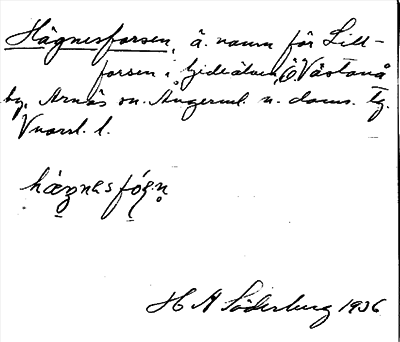 Hägnesforsen, ä. namn för Lill-
forsen i Gideälven, Ö. Västanå
by, Arnäs sn. Ångerml. n. doms. tg.
hægnesfóṣṇ
H A Söderberg 1936